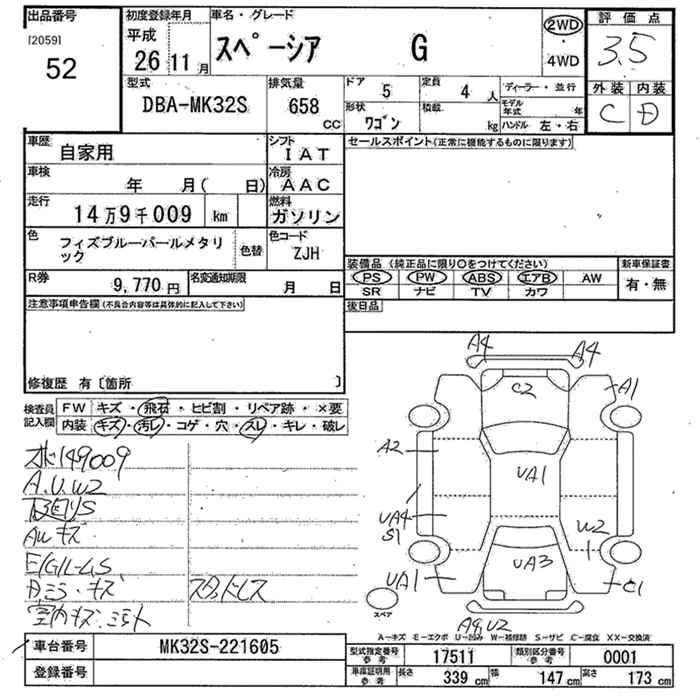 出品番号 初度登録年月 車名・グレード 2WD 評価点
[2059] 平成
52 26 11月 スペーシア G 4WD 3.5
型式 排気量 ドア 5 定員 4人 ディーラー・並行 外装 内装
DBA-MK32S 658 cc 形状 ワゴン 積載 kg モデル年式 年 ハンドル 左・右 C D
車歴 自家用 シフト IAT セールスポイント(正常に機能するものに限ります)
車検 年 月( 日) 冷房 AAC
走行 14万9千009 km 燃料 ガソリン
色 フィズブルーパールメタリック 色替 色コード ZJH
装備品 (純正品に限り○をつけてください) 新車保証書
R券 9,770円 名変通知期限 月 日 PS PW ABS エアB AW 有・無
SR ナビ TV カワ
注意事項申告欄(不具合内容等は具体的に記入して下さい) 後日品
修復歴 有〔箇所 〕
検査員記入欄 FW キズ・飛石・ヒビ割・リペア跡・×要
内装 キズ・汚レ・コゲ・穴・スレ・キレ・破レ
149009
A.U.W2
下回りS
AWキズ
スタッドレス
A4 A4
C2 A1
A2
UA1
UA4
S1 W2
UA3
UA1 C1
スペア
A9,U2
A-キズ E-エクボ U-凹み W-補修跡 S-サビ C-腐食 XX-交換済
車台番号 MK32S-221605
型式指定番号 参考 17511 類別区分番号 参考 0001
登録番号
車庫証明用 参考 長さ 339 cm 幅 147 cm 高さ 173 cm